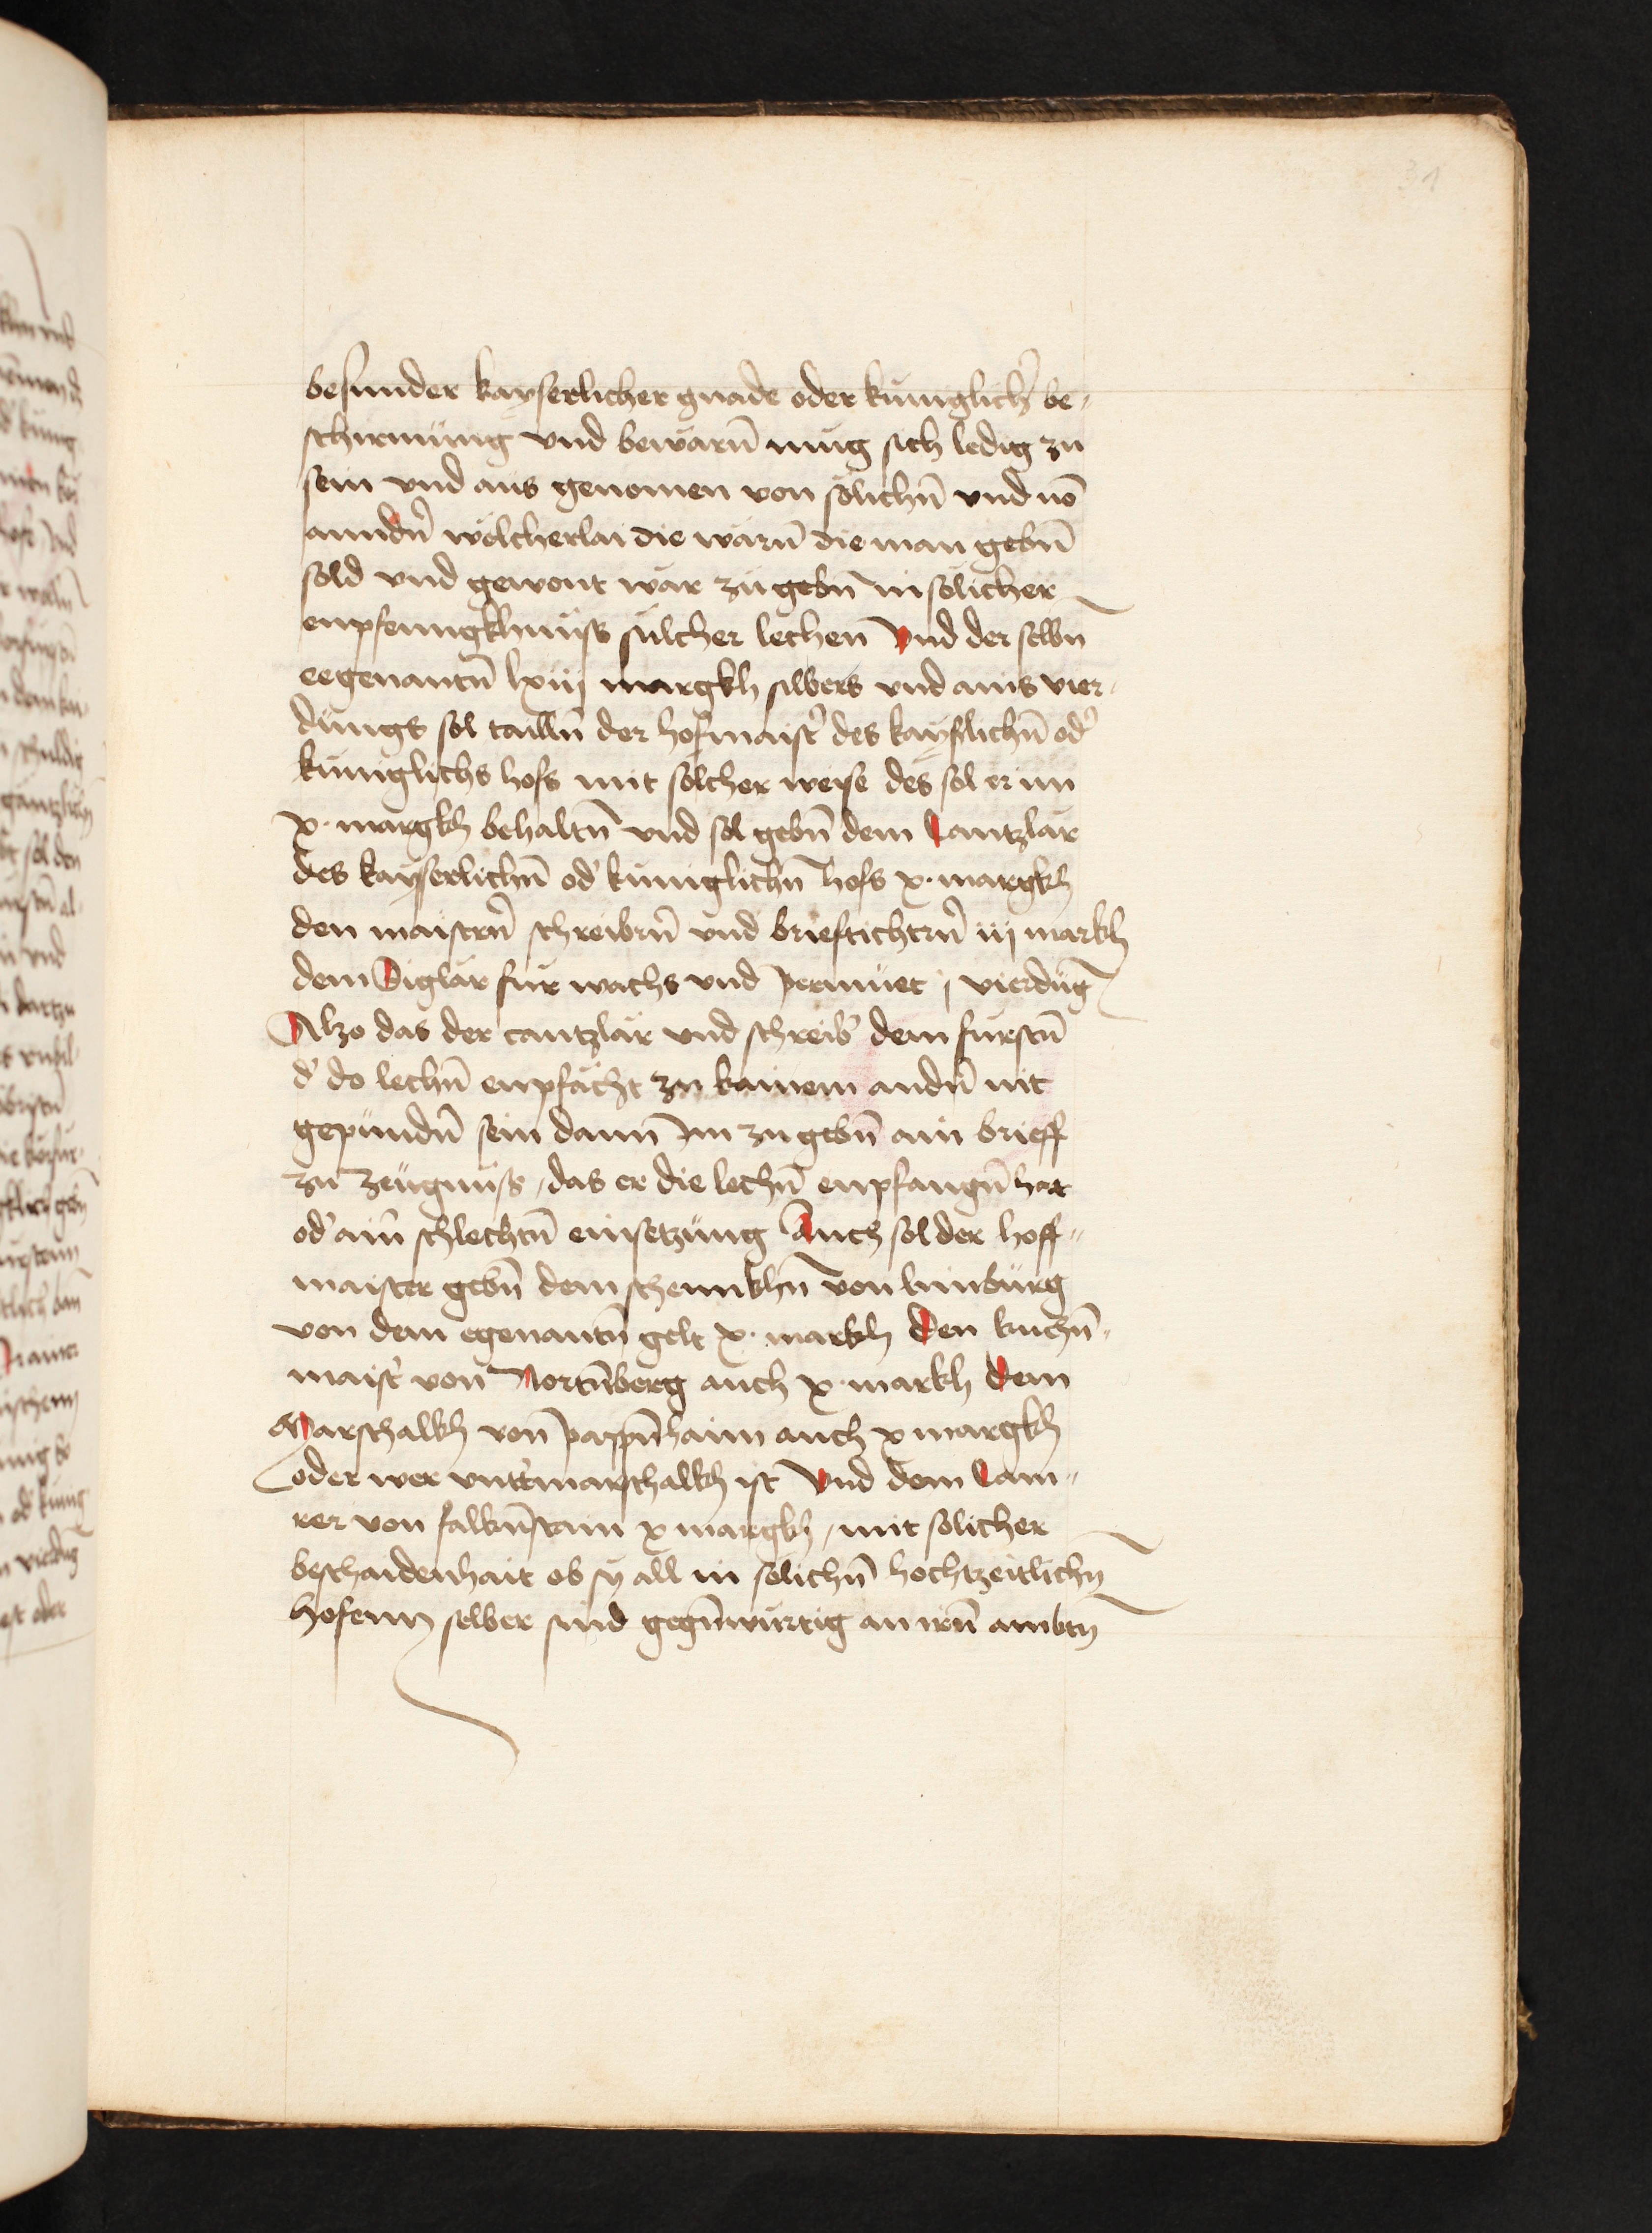 31
besunder kayserlicher gnade oder kuniglichʼ be-
schirmüng vnd bewarn̄ müg sich ledig zu
sein vnd aus genomen von sölichn̄ vnd uō
anndn̄ wölcherlai die wärn̄ die man gebn̄
sold vnd gewont wär zu gebn̄ in sölicher
enpfenngkhnüss sülcher lechen Vnd der selbn̄
eegenantn̄ lxiij margkh silbers vnd ains vier-
dungs sol tailln̄ der hofmaistʼ des kayslichn̄ odʼ
küniglichs hofs mit sölcher weise des sol er im
x. margkh behaltn̄ vnd sol gebn̄ dem Cantzlär
des kayserlichn̄ odʼ küniglichn̄ hofs x. margkh
den maistern̄ schreibrn̄ vnd brieftichtrn̄ iij markh
dem Siglär fur wachs vnd permüet j vierdüg
Alzo das der cantzlär vnd schreibʼ dem fürstn̄
dʼ do lechn̄ enpfächt zu kainem andn̄ nit
gepündn̄ sein dann im zu gebn̄ ain brieff
zu zeügnüss, das er die lechn̄ enpfangn̄ hat
odʼ ain̄ schlechtn̄ einsetzüng Auch sol der hoff-
maister gebn̄ dem schennkhn̄ von limbürg
von dem egenantn̄ gelt x. markh Den kuchn̄-
maistʼ von Nortn̄berg auch x. markh Dem
Marschalkh von pappn̄haim auch x margkh
oder wer vntʼmarschalkh ist Vnd dem Cam-
rer von falkn̄stain x margkh, mit solicher
beschaidenhait ob sy all in sölichn̄ hochtzeitlichn̄
hofenn selber sind gegn̄würtig an irn̄ ambtn̄